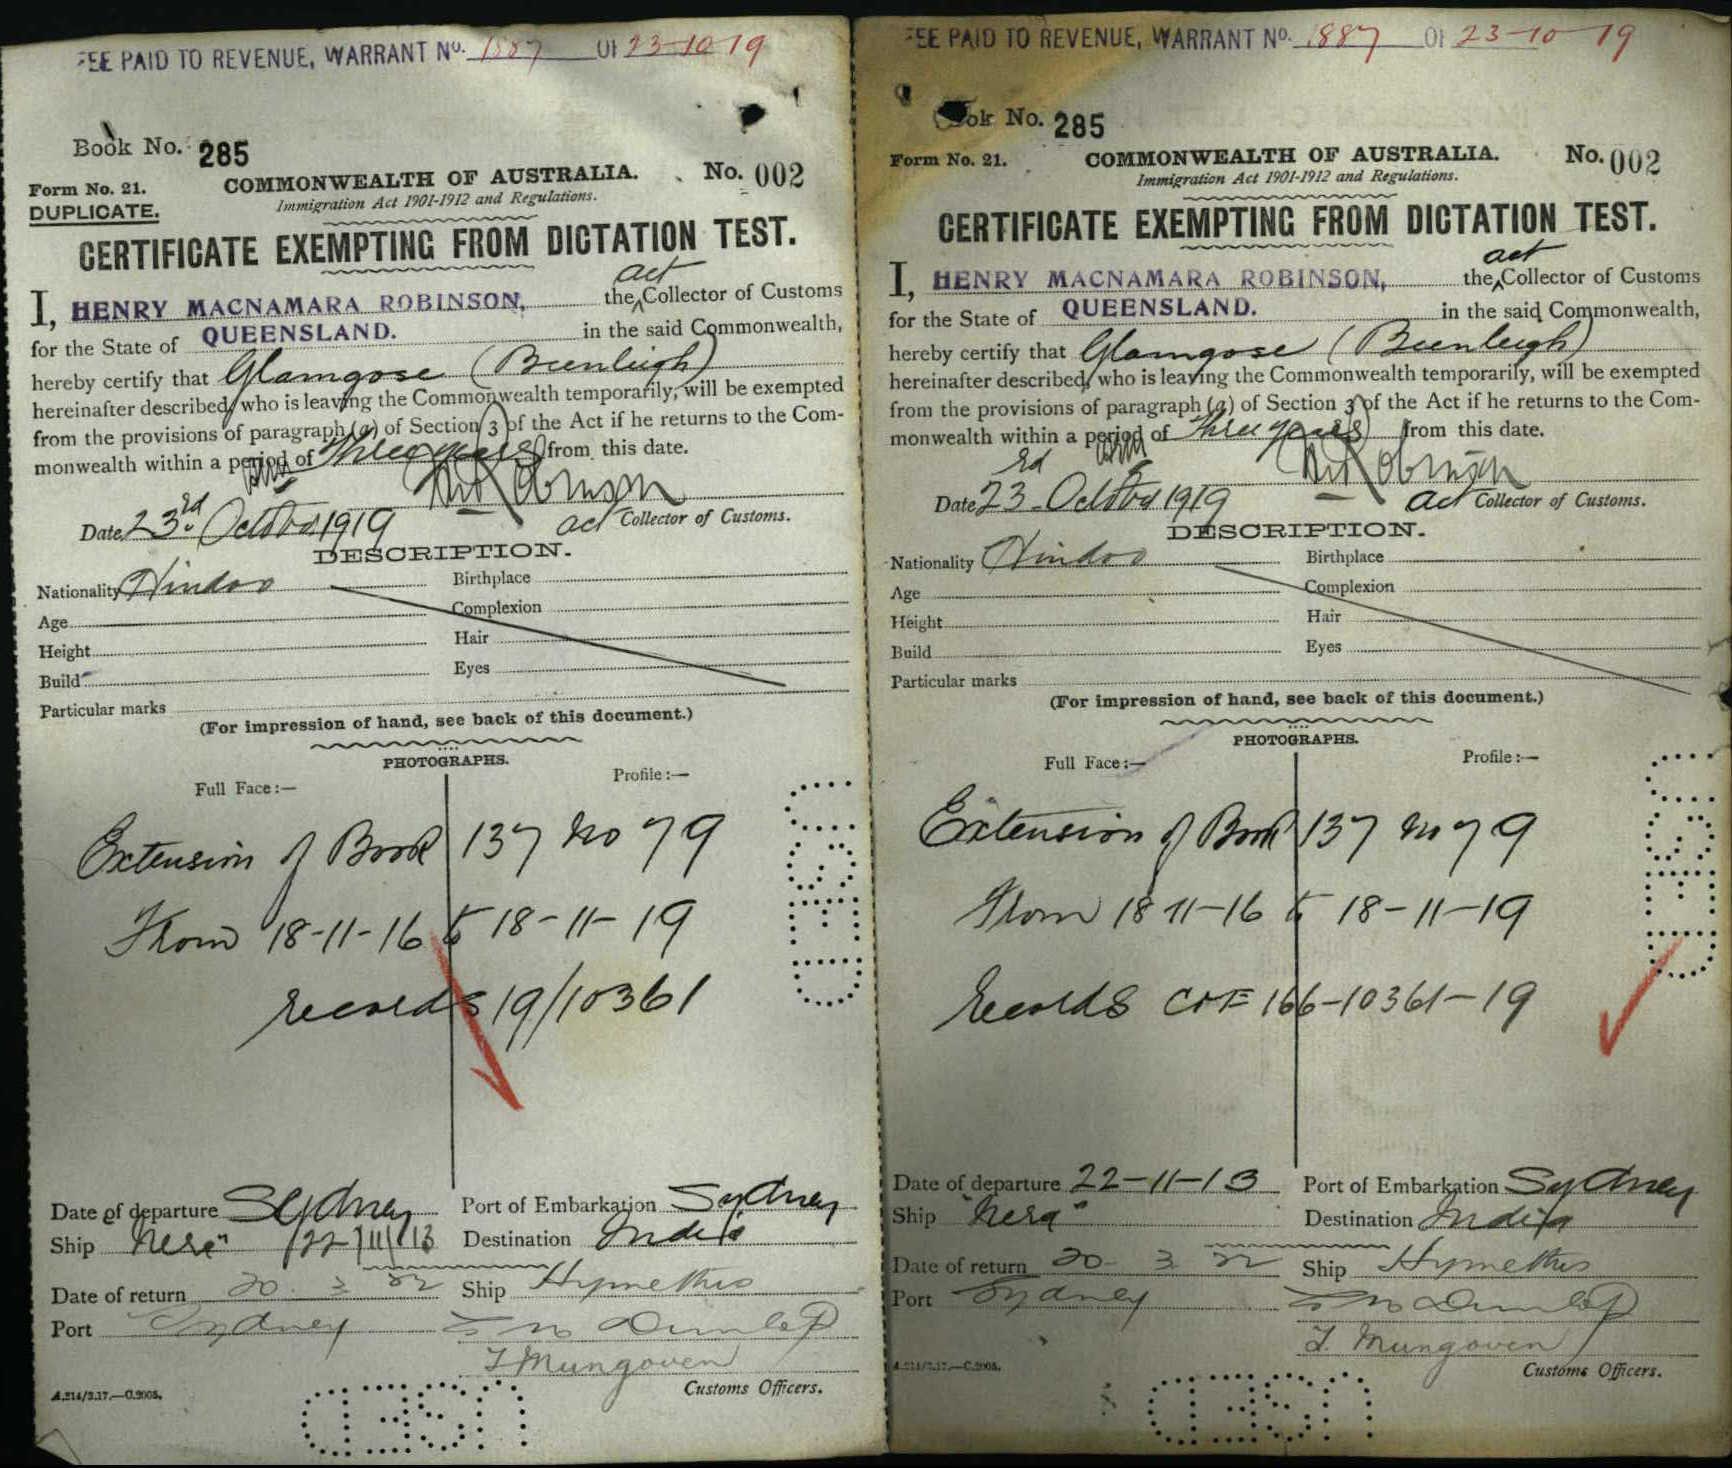 FEE PAID TO REVENUE, WARRANT No. 1887 Of 23-10-19
Book No. 285
Form No. 21.
DUPLICATE.
COMMONWEALTH OF AUSTRALIA.
No. 002
Immigration Act 1901-1912 and Regulations.
CERTIFICATE EXEMPTING FROM DICTATION TEST.
I, HENRY MACNAMARA ROBINSON, the act Collector of Customs
for the State of QUEENSLAND. in the said Commonwealth,
hereby certify that Glamgose (Beenleigh)
hereinafter described, who is leaving the Commonwealth temporarily, will be exempted
from the provisions of paragraph (a) of Section 3 of the Act if he returns to the Com-
monwealth within a period of three years from this date.
HM Robinson
Date 23rd October 1919 act Collector of Customs.
DESCRIPTION.
Nationality Hindoo Birthplace
Age Complexion
Height Hair
Build Eyes
Particular marks
(For impression of hand, see back of this document.)
PHOTOGRAPHS.
Full Face:— Profile:—
Extension of Book 137 No 79
From 18-11-16 to 18-11-19
records 19/10361
Date of departure Sydney Port of Embarkation Sydney
Ship "Nera" 22/11/13 Destination India
Date of return 20. 3. 22 Ship Hymettus
Port Sydney Dunlop
T Mungoven
A.214/3.17.—C.2005. Customs Officers.
USED
USED
FEE PAID TO REVENUE, WARRANT No. 1887 Of 23-10-19
Book No. 285
Form No. 21.
COMMONWEALTH OF AUSTRALIA.
No. 002
Immigration Act 1901-1912 and Regulations.
CERTIFICATE EXEMPTING FROM DICTATION TEST.
I, HENRY MACNAMARA ROBINSON, the act Collector of Customs
for the State of QUEENSLAND. in the said Commonwealth,
hereby certify that Glamgose (Beenleigh)
hereinafter described, who is leaving the Commonwealth temporarily, will be exempted
from the provisions of paragraph (a) of Section 3 of the Act if he returns to the Com-
monwealth within a period of three years from this date.
HM Robinson
Date 23rd October 1919 act Collector of Customs.
DESCRIPTION.
Nationality Hindoo Birthplace
Age Complexion
Height Hair
Build Eyes
Particular marks
(For impression of hand, see back of this document.)
PHOTOGRAPHS.
Full Face:— Profile:—
Extension of Book 137 No 79
From 18-11-16 to 18-11-19
Records C&E 166-10361-19
Date of departure 22-11-13 Port of Embarkation Sydney
Ship "Nera" Destination India
Date of return 20 3 22 Ship Hymettus
Port Sydney Dunlop
T. Mungoven
A.214/3.17.—C.2005. Customs Officers.
USED
USED